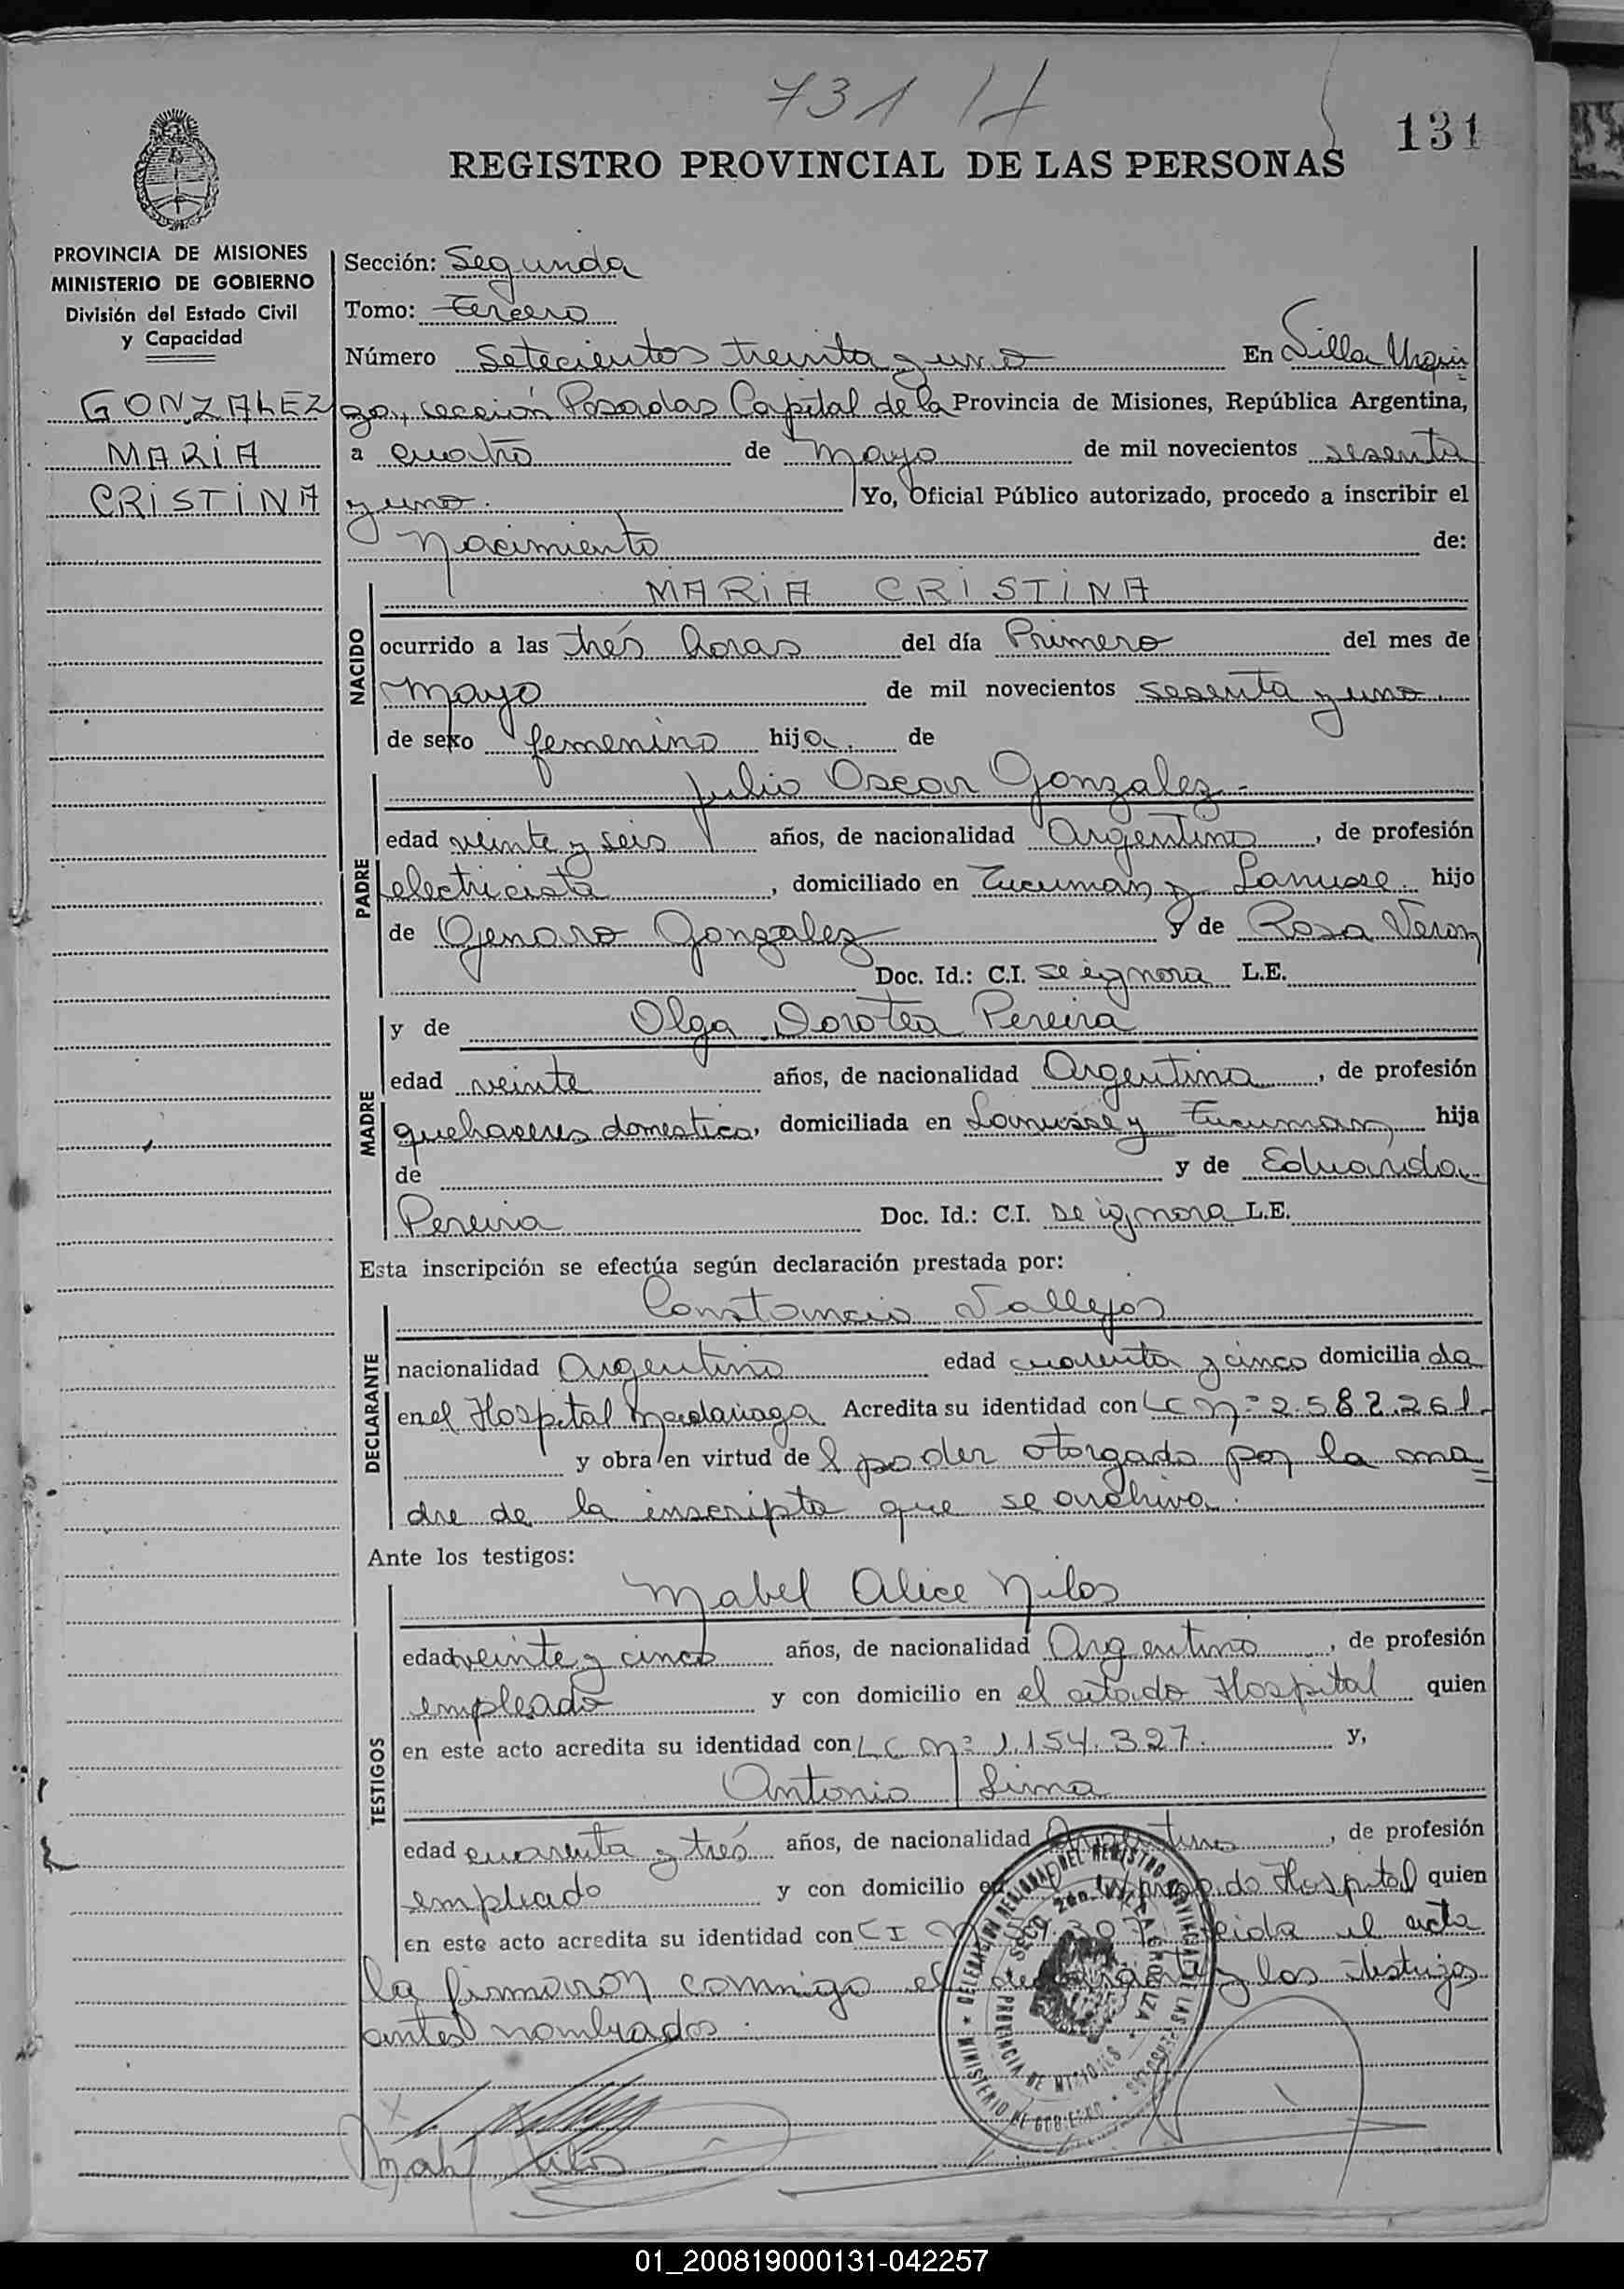 731 H
131
REGISTRO PROVINCIAL DE LAS PERSONAS
PROVINCIA DE MISIONES
MINISTERIO DE GOBIERNO
División del Estado Civil
y Capacidad
GONZALEZ
MARIA
CRISTINA
Sección: Segunda
Tomo: tercero
Número setecientos treinta y uno En Villa Urqui
za, sección Posadas Capital de la Provincia de Misiones, República Argentina,
a cuatro de mayo de mil novecientos sesenta
y uno. Yo, Oficial Público autorizado, procedo a inscribir el
Nacimiento de:
NACIDO
MARIA CRISTINA
ocurrido a las tres horas del día Primero del mes de
mayo de mil novecientos sesenta y uno.
de sexo femenino hija de
PADRE
Julio Oscar Gonzalez.-
edad veinte y seis años, de nacionalidad Argentino, de profesión
electricista, domiciliado en Tucuman y Lanusse. hijo
de Genaro Gonzalez y de Rosa Veron
Doc. Id.: C.I. se ignora L.E.
MADRE
y de Olga Dorotea Pereira
edad veinte años, de nacionalidad Argentina, de profesión
quehaseres domestico, domiciliada en Lanusse y Tucuman hija
de y de Eduarda
Pereira Doc. Id.: C.I. se ignora L.E.
Esta inscripción se efectúa según declaración prestada por:
DECLARANTE
Constancia Vallejos
nacionalidad Argentino edad cuarenta y cinco domicilia da
en el Hospital Madariaga Acredita su identidad con LC Nº 2.582.261.
y obra en virtud del poder otorgado por la ma
dre de la inscripta que se archiva.
Ante los testigos:
TESTIGOS
Mabel Alice Nilos
edad veinte y cinco años, de nacionalidad Argentino, de profesión
empleado y con domicilio en el citado Hospital quien
en este acto acredita su identidad con LC Nº 1.154.327. y,
Antonio Lima
edad cuarenta y tres años, de nacionalidad Argentino, de profesión
empleado y con domicilio en do Hospital quien
en este acto acredita su identidad con CI 307 leida el acta
la firmaron commigo el declarante y los testigos
antes nombrados.
DELEGACION REGIONAL DEL REGISTRO PROVINCIAL DE LAS PERSONAS
MINISTERIO DE GOBIERNO
SECC. 2da. VILLA URQUIZA
PROVINCIA DE MISIONES
Mabel Nilos
01_200819000131-042257